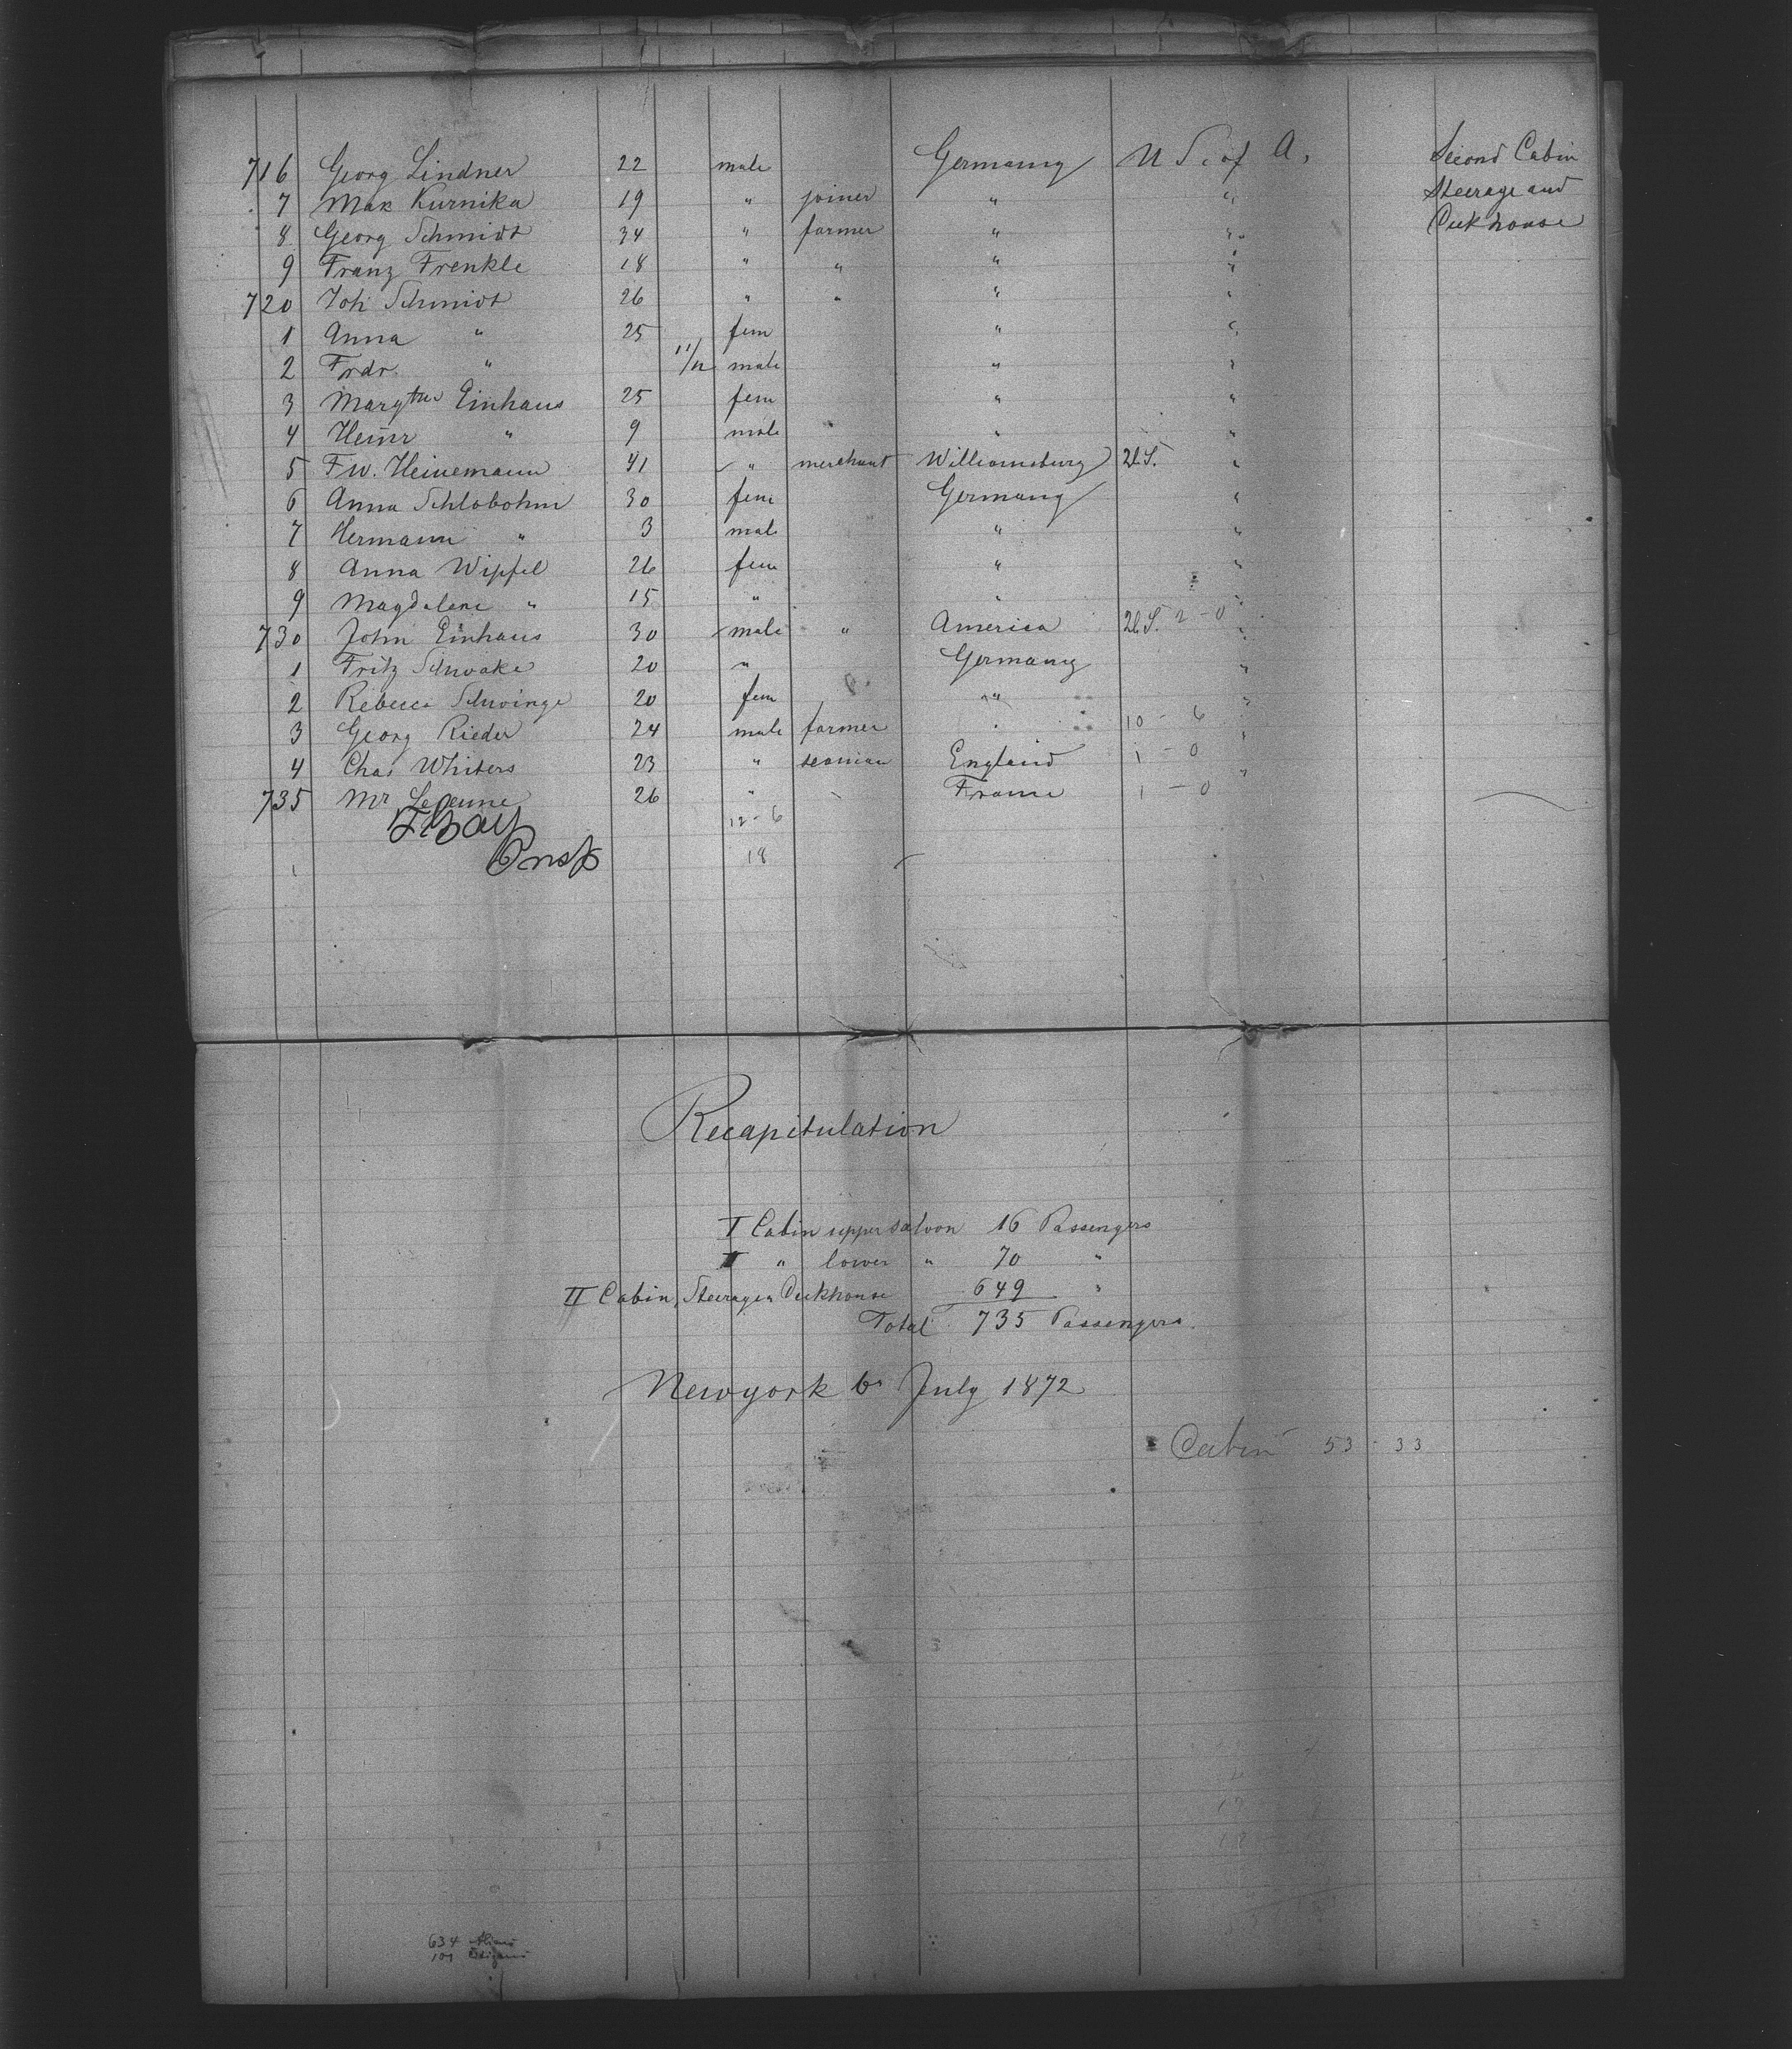 716 Georg Lindner 22 male Germany U S. of A. Second Cabin
7 Max Kurnika 19 " joiner " " Steerage and
8 Georg Schmidt 34 " farmer " " Deckhouse
9 Franz Frenkle 18 " " " "
720 Joh Schmidt 26 " " " "
1 Anna " 25 fem " "
2 Frdr. " 11/12 male " "
3 Margthe Einhaus 25 fem " "
4 Heinr " 9 male " "
5 Fw. Heinemann 41 " merchant Williamsburg U.S. "
6 Anna Schlobohm 30 fem Germany "
7 Hermann " 3 male " "
8 Anna Wipfel 26 fem " "
9 Magdalene " 15 " " "
730 John Einhaus 30 male " America U.S. 2 - 0 "
1 Fritz Schwake 20 " Germany "
2 Rebecca Schwinge 20 fem " "
3 Georg Rieder 24 male farmer " 10 - 6 "
4 Chas Whiters 23 " seaman England 1 - 0 "
735 Mr Lejeune 26 " France 1 - 0
12 - 6
Insp
18
Recapitulation
I Cabin upper saloon 16 Passengers
" lower " 70 "
II Cabin, Steerage & Deckhouse 649 "
Total 735 Passengers.
Newyork 6 July 1872
Cabin 53 - 33
634 Aliens
101 Citizens